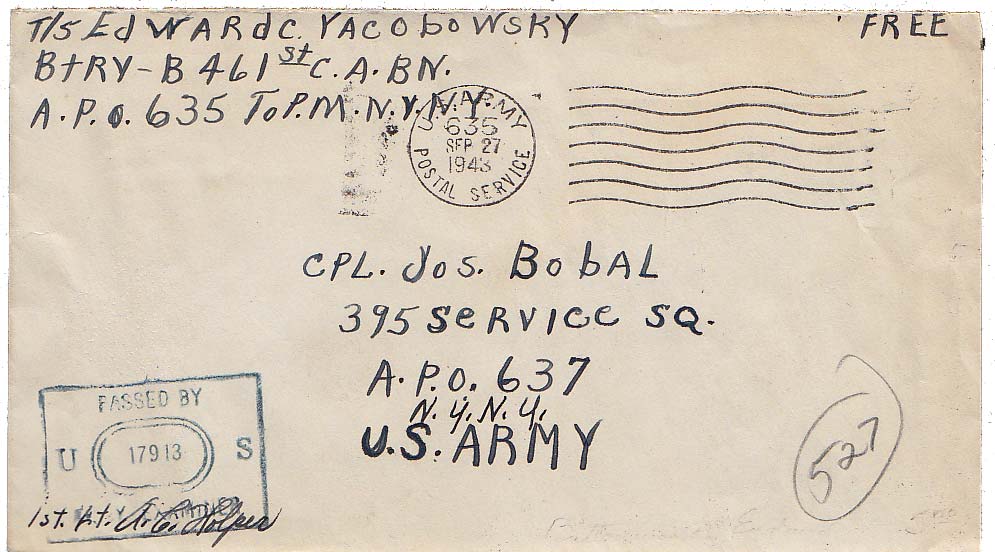 T/5 EdWARd C. YACObOWSKY
FREE
BtRY-B 461st C.A.BN.
A.P.O. 635 To P.M. N.Y. N.Y.
U.S. ARMY
635
SEP 27
1943
POSTAL SERVICE
CPL. Jos. BObAL
395 SeRVICE SQ.
A.P.O. 637
N.Y. N.Y.
U.S. ARMY
PASSED BY
U 17913 S
ARMY EXAMINER
1st. Lt.
527